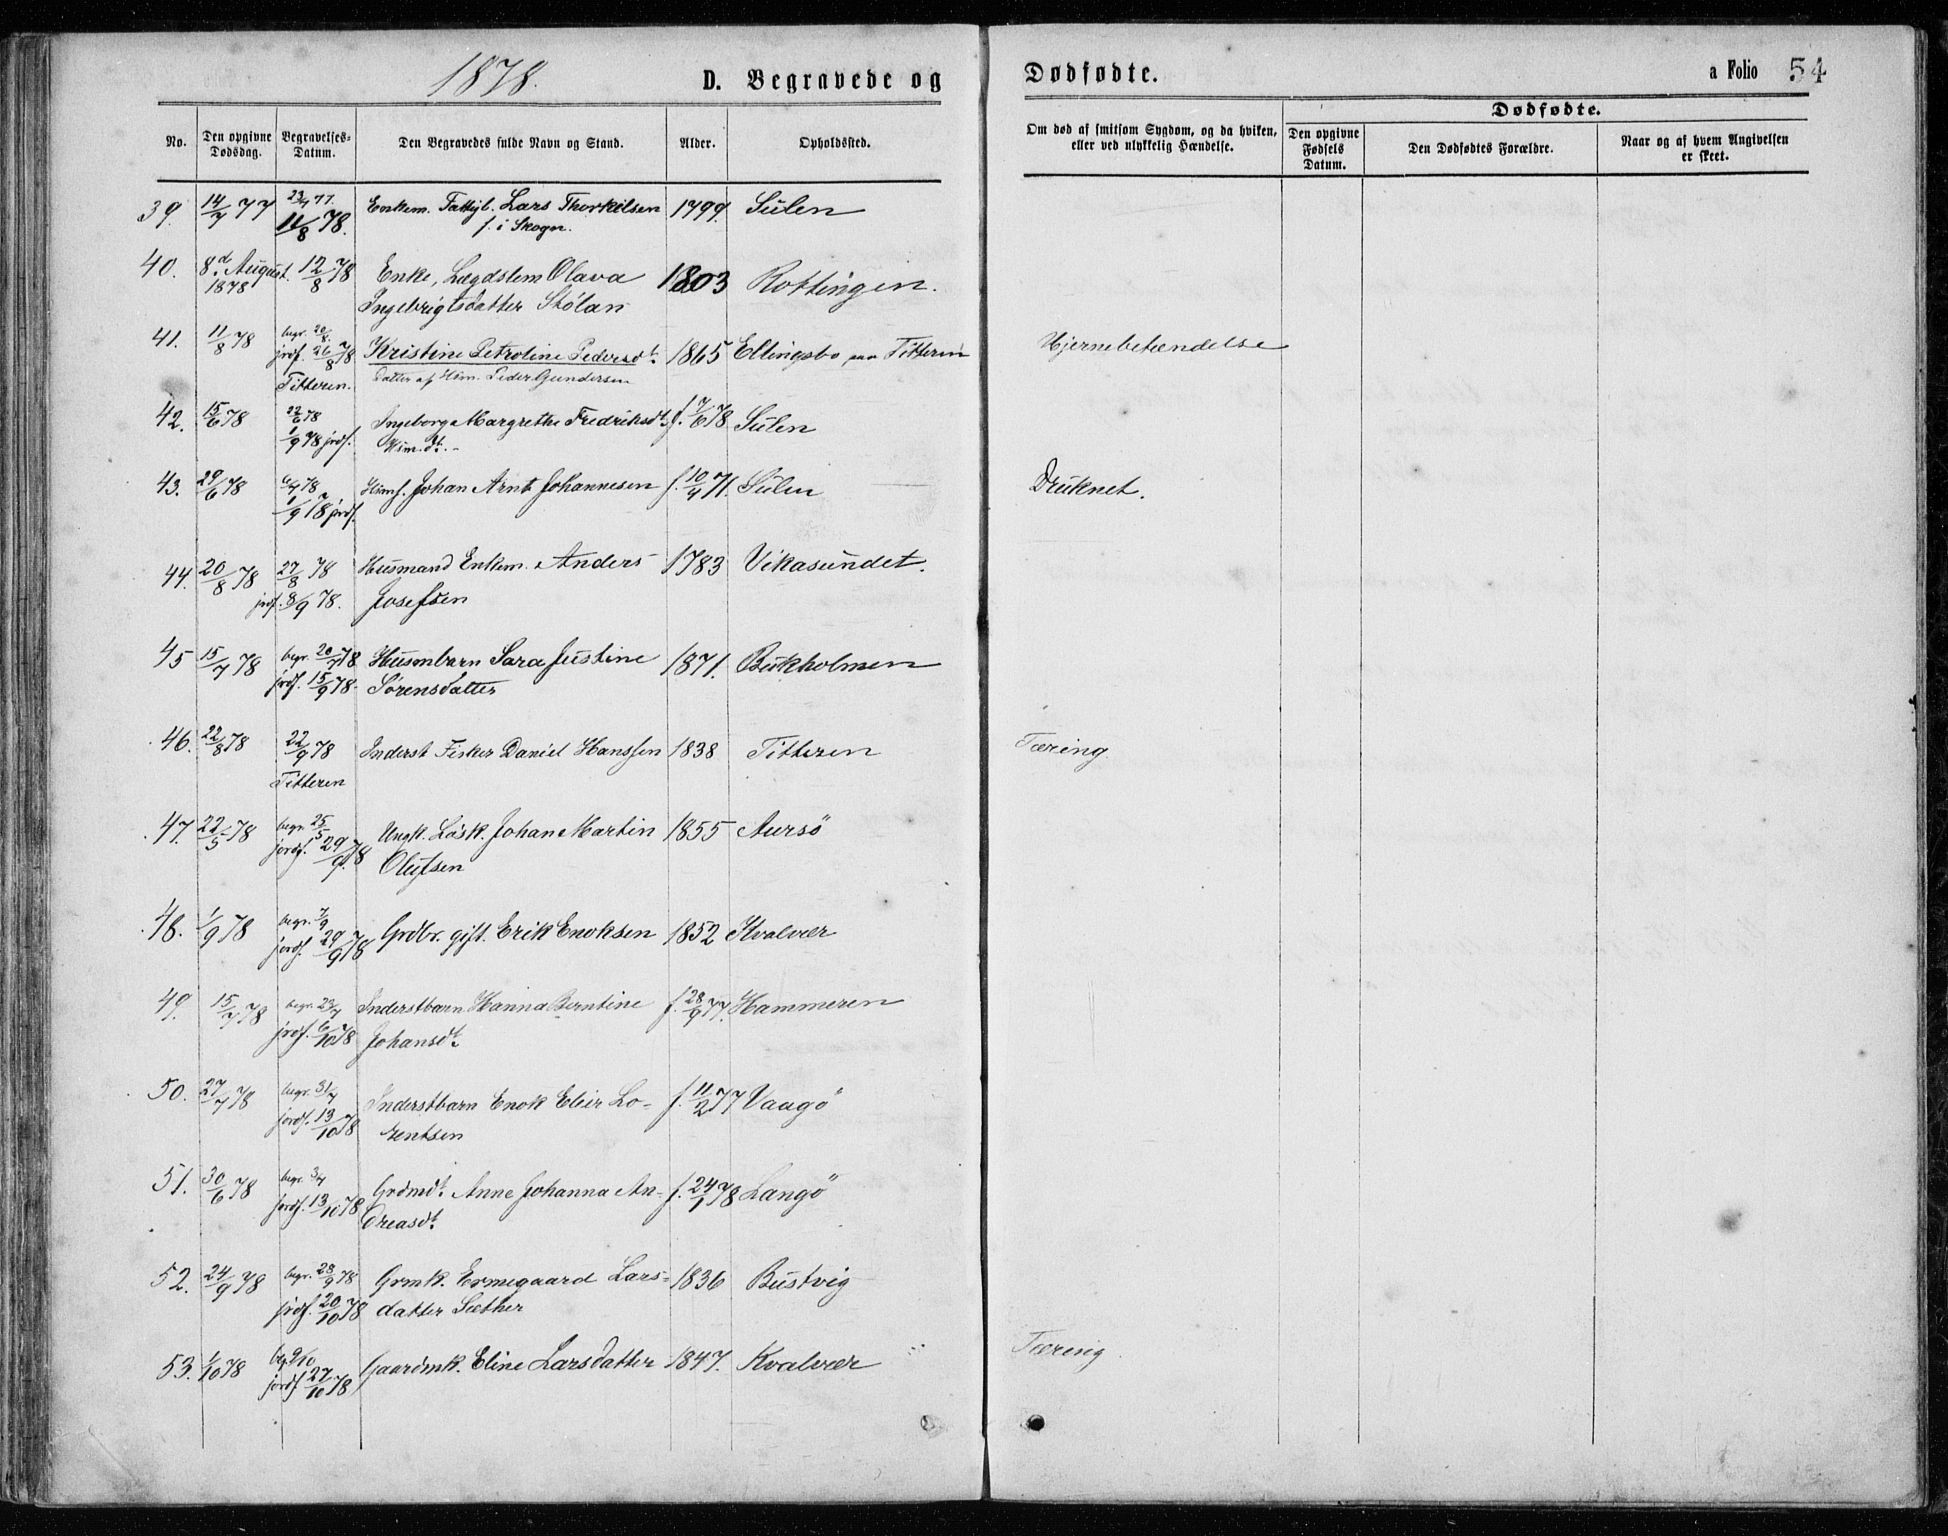 1878.
D. Begravede og
Dødfødte.
a Folio 54
No.
Den opgivne Dødsdag.
Begravelses-Datum.
Den Begravedes fulde Navn og Stand.
Alder.
Opholdssted.
Om død af smitsom Sygdom, og da hvilken, eller ved ulykkelig Hændelse.
Dødfødte.
Den opgivne Fødsels Datum.
Den Dødfødtes Forældre.
Naar og af hvem Angivelsen er skeet.
39. 14/7 77 23/7 77. Enkem. Fattigl. Lars Thorkelsen 1799. Sulen
11/8 78. f. i Skogn.
40. 8d August. 12/8 78 Enke, Lægdslem Olava 1803 Rottingen.
1878 Ingebrigtsdatter Stølan
41. 11/8 78 begr. 20/8. Kristine Petroline Pedersdt. 1865 Ellingsbo paa Titteren Hjernebetændelse
jrdf. 26/8 78 Datter af Hsm. Peder Gundersen
Titteren.
42. 15/6 78 22/6 78 Ingeborg Margrethe Fredriksdt. f. 7/6 78 Sulen
1/9 78 jrdf. Hsm. dt.
43. 29/6 78 6/7 78 Johan Arnt Johannesen f. 10/4 71. Sulen Druknet.
1/9 78 jrdf.
44. 20/8 78 27/8 78 Husmand Enkem. Anders 1783 Vikasundet.
jrdf. 8/9 78. Josefsen
45 15/7 78 begr. 20/7 78 Husmbarn Sara Justine 1871. Bukholmen
jrdf. 15/9 78. Sørensdatter
46. 22/8 78 22/9 78 Inderst Fisker Daniel Hanssen 1838 Titteren Tæring.
Titteren
47. 22/5 78 begr. 25/5 Ungk. Løsk. Johan Martin 1855 Aursö
jordf. 29/9 78 Olufsen
48. 1/9 78 begr. 7/9 Grdbr. gift. Erik Enoksen 1852 Kvalvær
jordf. 29/9 78
49. 15/7 78 begr. 23/7 Inderstbarn Hanna Berntine f. 28/9 77. Hammeren
jrdf. 6/10 78 Johansdt.
50. 27/7 78 begr. 31/7 Inderstbarn Enok Elier Lo- f. 11/2 77 Vaagö
jordf. 13/10 78 rentsen
51. 30/6 78 begr. 3/7 Grdmdt. Anne Johanna An- f. 24/1 78 Langö
jordf. 13/10 78 dreasdt.
52. 24/9 78 begr. 28/9 78 Grmk. Ermegaard Lars- 1836 Bustvig
jrdf. 20/10 78 datter Sæther
53. 1/10 78 beg. 9/10 Gaardmk. Eline Larsdatter 1847. Kvalvær Tæring.
jordf 27/10 78